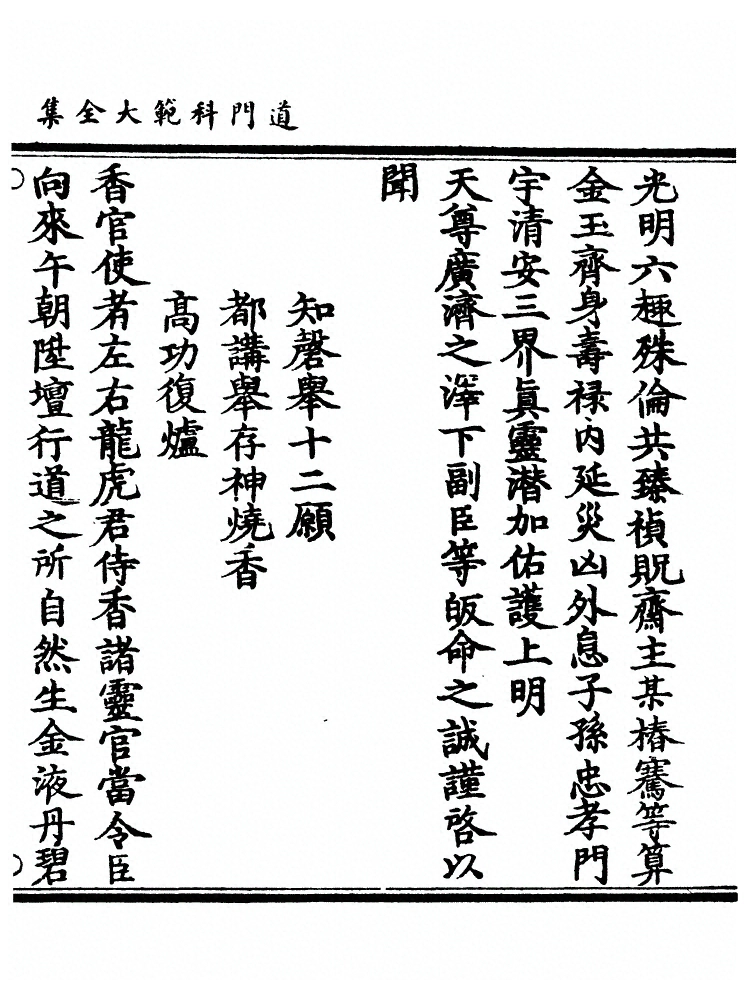 道門科範大全集
光明六趣殊倫共臻禎貺齋主某椿騫等算
金玉齊身壽祿內延災凶外息子孫忠孝門
宇清安三界眞靈潛加佑護上明
天尊廣濟之澤下副臣等皈命之誠謹啓以
聞
知磬舉十二願
都講舉存神燒香
高功復爐
香官使者左右龍虎君侍香諸靈官當令臣
向來午朝陞壇行道之所自然生金液丹碧